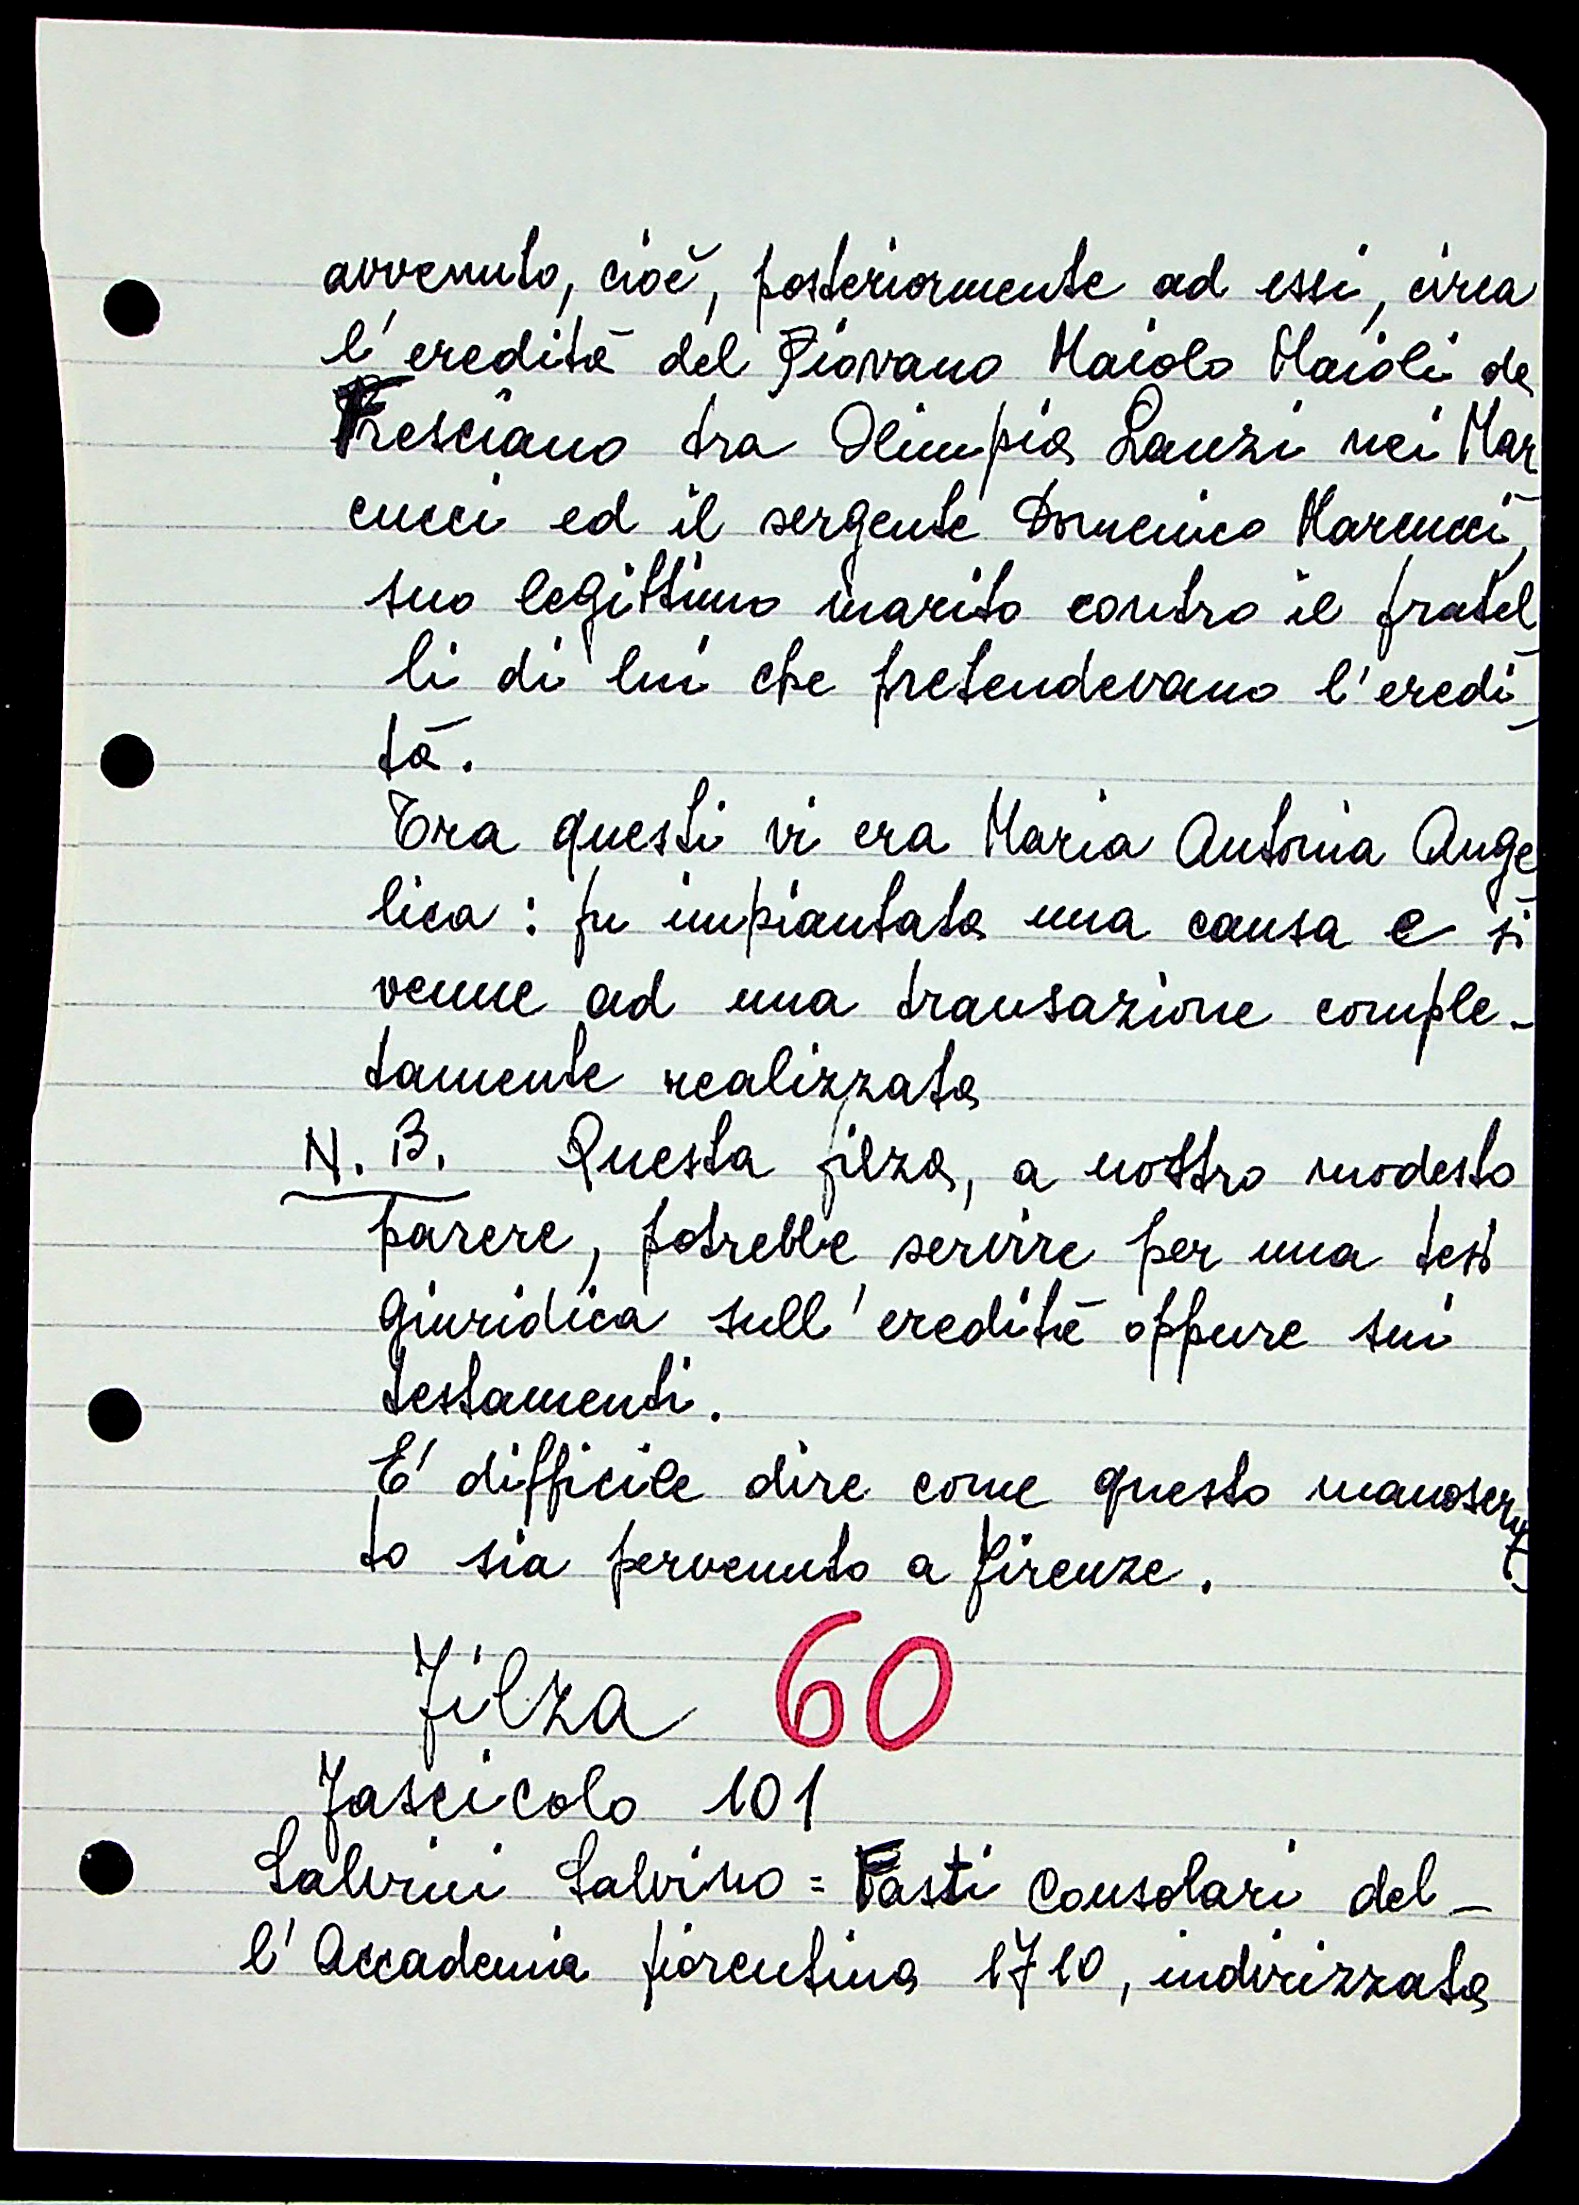 avvenuto, cioè, posteriormente ad essi, circa
l'eredità del Piovano Maiolo Maioli da
Fresciano tra Olimpia Lanzi nei Mar
cucci ed il sergente Domenico Marcucci,
suo legittimo marito contro il fratel
li di lui che pretendevano l'eredi
tà.
Tra questi vi era Maria Antonia Ange
lica: fu impiantata una causa e si
venne ad una transazione comple-
tamente realizzata
N. B. Questa filza, a nostro modesto
parere, potrebbe servire per una tesi
giuridica sull'eredità oppure sui
testamenti.
E' difficile dire come questo manoscrit
to sia pervenuto a Firenze.
Filza 60
Fascicolo 101
Salvini Salvino = Fasti Consolari del-
l'Accademia fiorentina 1710, indirizzata